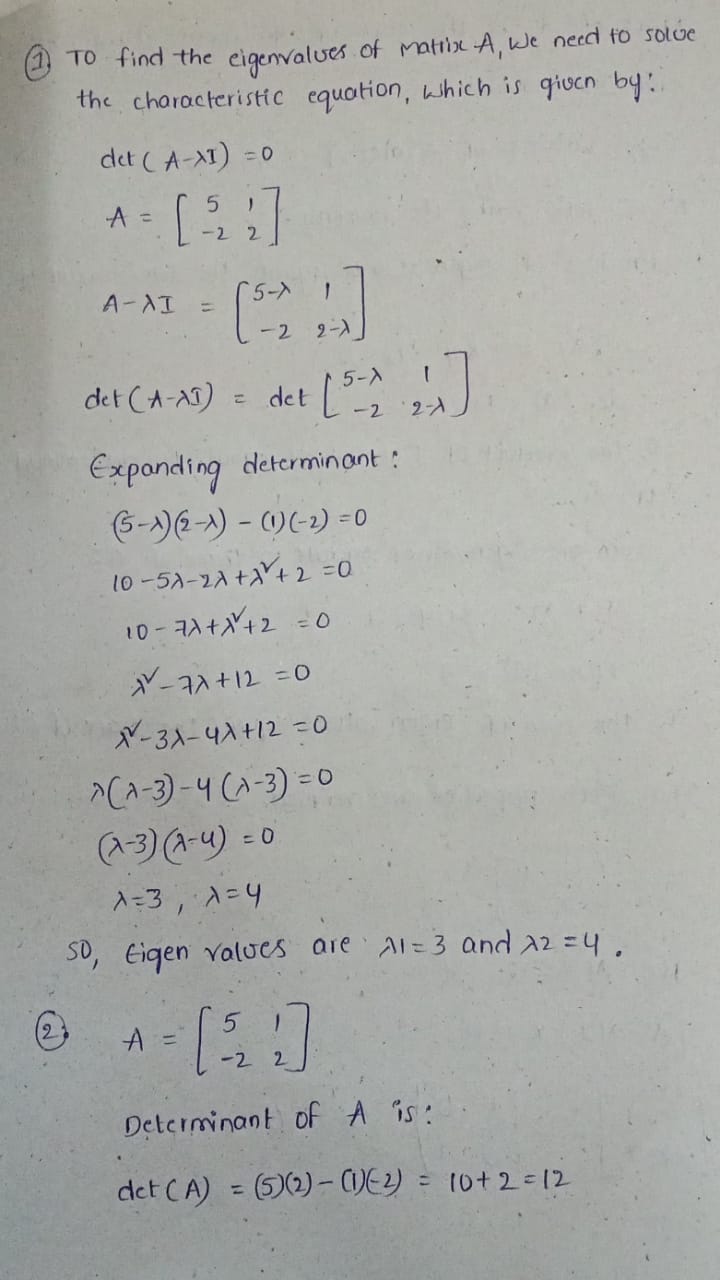 ① To find the eigenvalues of matrix A, We need to solve
the characteristic equation, which is given by:
det (A-λI) = 0
A = [ 5 1
-2 2 ]
A-λI = [ 5-λ 1
-2 2-λ ]
det (A-λI) = det [ 5-λ 1
-2 2-λ ]
Expanding determinant :
(5-λ)(2-λ) - (1)(-2) = 0
10 - 5λ - 2λ + λ² + 2 = 0
10 - 7λ + λ² + 2 = 0
λ² - 7λ + 12 = 0
λ² - 3λ - 4λ + 12 = 0
λ(λ-3) - 4(λ-3) = 0
(λ-3)(λ-4) = 0
λ=3 , λ=4
SO, Eigen values are λ1 = 3 and λ2 = 4 .
② A = [ 5 1
-2 2 ]
Determinant of A is :
det (A) = (5)(2) - (1)(-2) = 10 + 2 = 12